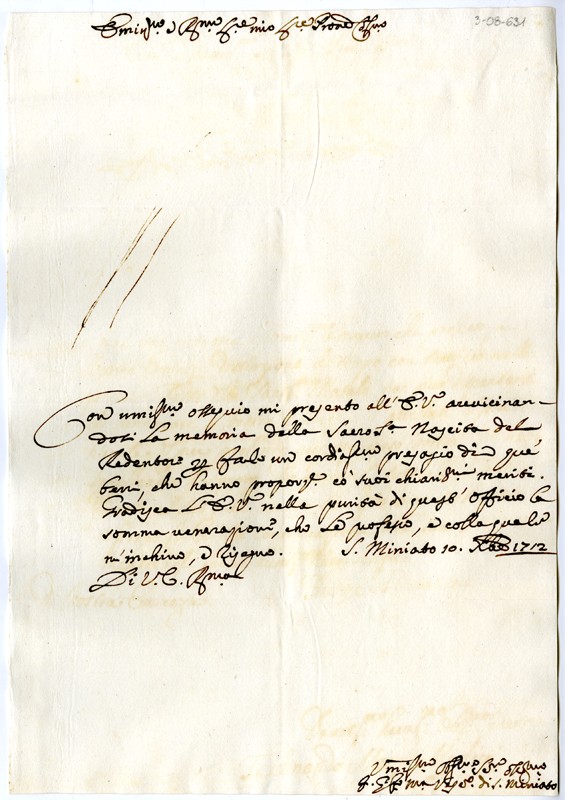 3-08-631
Emin.mo e R.mo Sig.re mio Sig.re Pron.e Col.mo
Con umiliss.mo ossequio mi presento all' E. V.a avvicinan-
dosi la memoria della Sacros.ta Nascita del
Redentore p farle un cordialiss.mo presagio di que'
beni, che hanno proporz.e có suoi chiariss.mi meriti.
Gradisca L' E. V.a nella purità di quest' officio la
somma venerazione, che le professo, e colla quale
m' inchino, e rassegno. S. Miniato 10. Xbre 1712
Di V. E. R.ma
Umiliss.mo Oss.mo
Vesc.o di S. Miniato